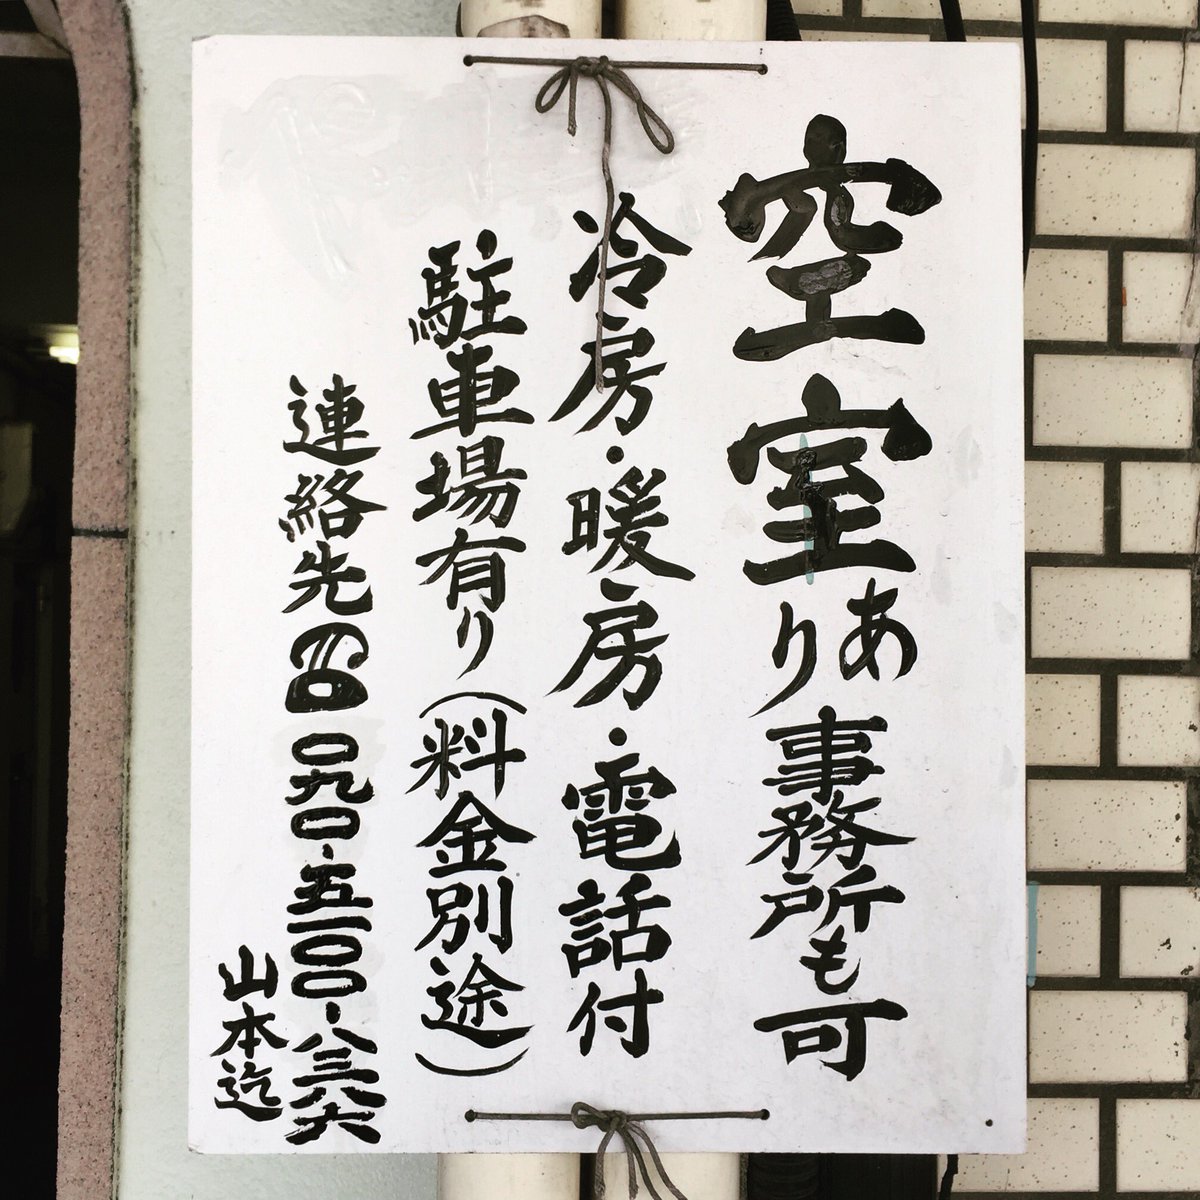 空室あり事務所も可
冷房・暖房・電話付
駐車場有り(料金別途)
連絡先☎〇九〇-五一〇〇-八三八六
山本迄